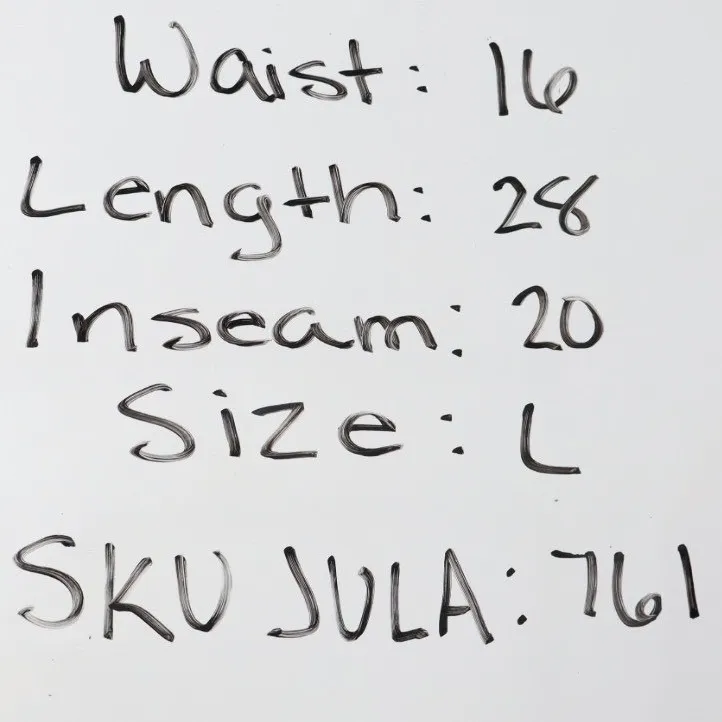 Waist: 16
Length: 28
Inseam: 20
Size: L
SKU JULA: 761